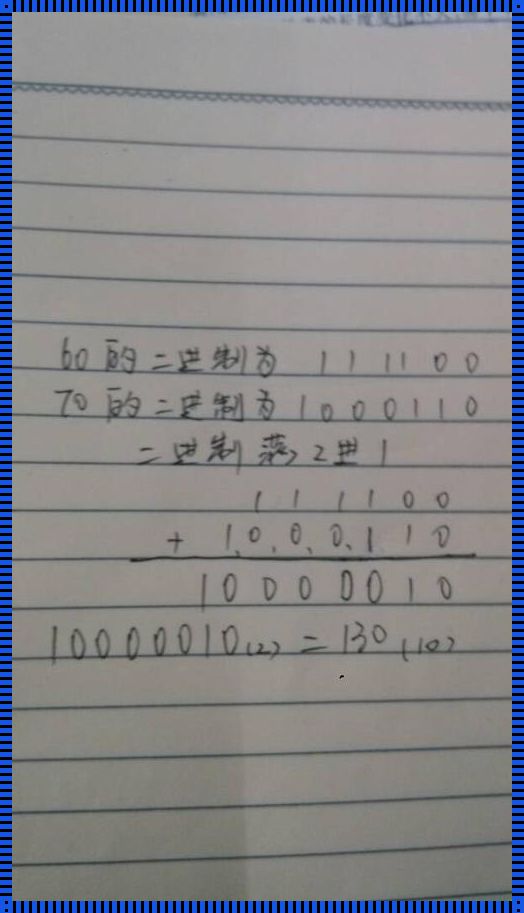 60的二进制为 111100
70的二进制为1000110
二进制满2进1
111100
+ 1.0.0.0.110
10000010
10000010(2) = 130(10)